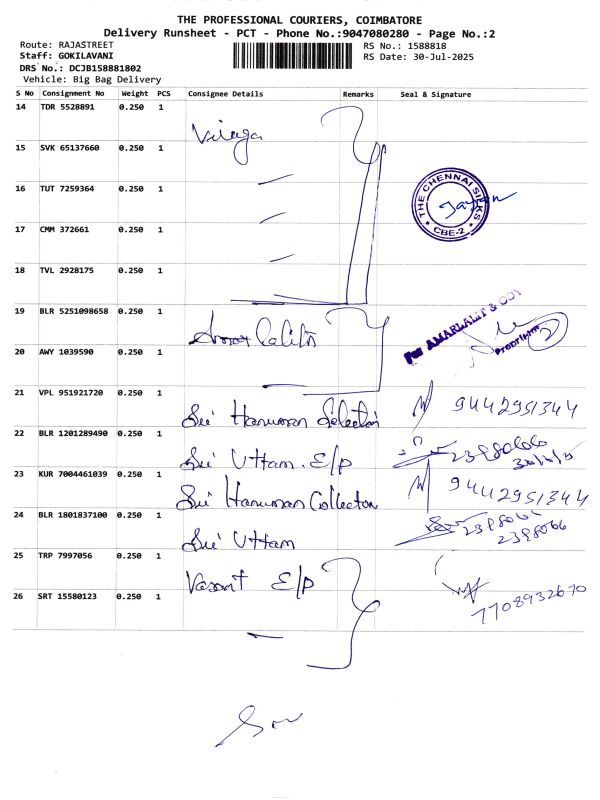 THE PROFESSIONAL COURIERS, COIMBATORE
Delivery Runsheet - PCT - Phone No.:9047080280 - Page No.:2
Route: RAJASTREET
Staff: GOKILAVANI
DRS No.: DCJB158881802
Vehicle: Big Bag Delivery
RS No.: 1588818
RS Date: 30-Jul-2025
S No Consignment No Weight PCS Consignee Details Remarks Seal & Signature
14 TDR 5528891 0.250 1
15 SVK 65137660 0.250 1
16 TUT 7259364 0.250 1
THE CHENNAI SILKS
* CBE-2 *
17 CMM 372661 0.250 1
18 TVL 2928175 0.250 1
19 BLR 5251098658 0.250 1
For AMARLALIT & COY
Proprietor
20 AWY 1039590 0.250 1
21 VPL 951921720 0.250 1 Sri Hanuman 9442951344
22 BLR 1201289490 0.250 1 Sri Uttam. E/P
23 KUR 7004461039 0.250 1 Sri Hanuman Collection 9442951344
24 BLR 1801837100 0.250 1 Sri Uttam 2398066
25 TRP 7997056 0.250 1 Vasant E/P
26 SRT 15580123 0.250 1 7708932670